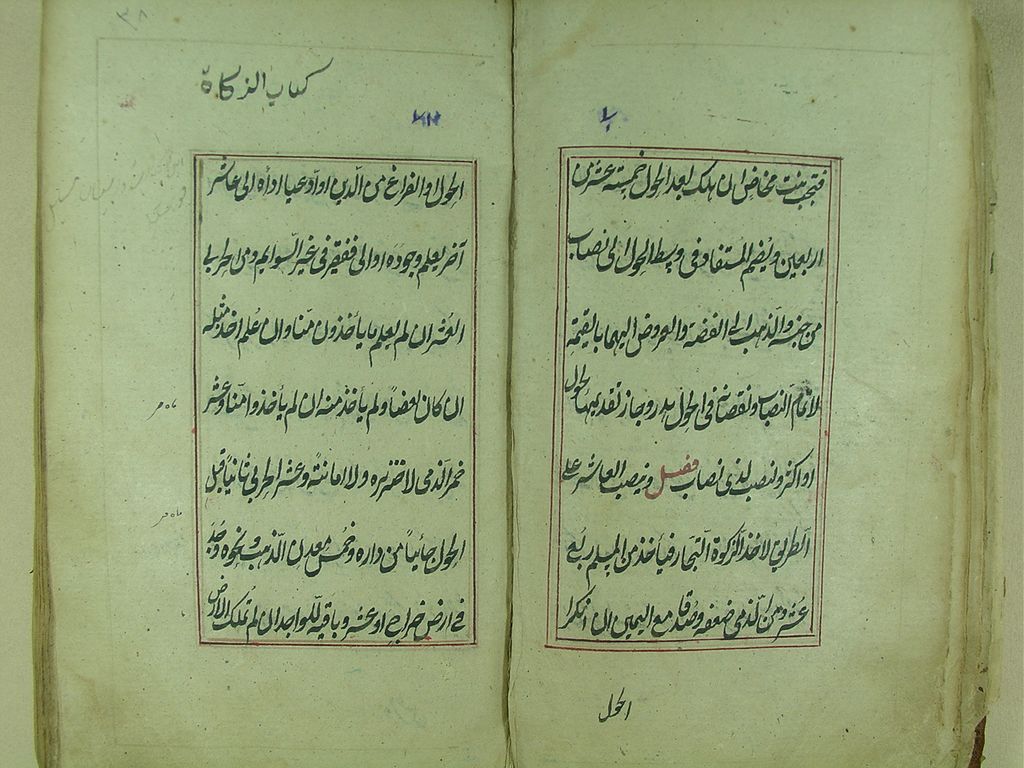 فتجب بنت مخاض ان هلك بعد الحول خمسة عشر من
اربعين ويضم المستفاد في وسط الحول الى نصاب
من جنسه والذهب الى الفضة والعروض اليهما بالقيمة
لاتمام النصاب ونقصانه في الحول هدر وجاز تقديمها لحول
او اكثر ولنصب لذي نصاب فصل ونصب العاشر على
الطريق لاخذ الزكوة التجار فيأخذ من المسلم ربع
عشر ومن الذمي ضعفه وصدقا مع اليمين ان انكرا
الحول
كتاب الزكاة
الحول او الفراغ من الدين او ادعيا اداه الى عاشر
آخر يعلم وجوده او الى فقير في غير السوايم ومن الحربي
العشر ان لم يعلم ما يأخذون منا وان علم اخذ مثله
ان كان بعضا ولم يأخذ منه ان لم يأخذوا منا وعشر
خمر الذمي لا خنزيره ولا امانته وعشر الحربي ثانيا قبل
الحول جائيا من داره وخمس معدن الذهب ونحوه وجد
في ارض خراج او عشر وباقيه للواجد ان لم تملك الارض